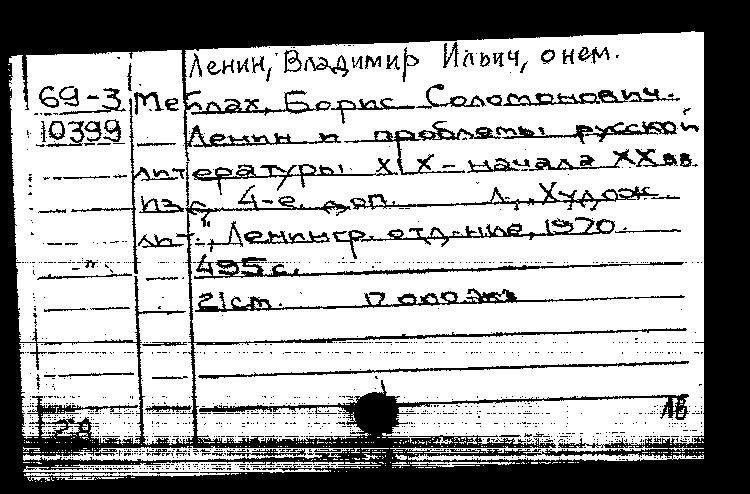 Ленин, Владимир Ильич, о нем.
69-3 Мейлах, Борис Соломонович.
10399 Ленин и проблемы русской
литературы XIX - начала XX вв.
Изд. 4-е. доп. Л., "Худож.
лит.", Ленингр. отд-ние, 1970.
-"- 495 с.
21 см. 17 000 экз